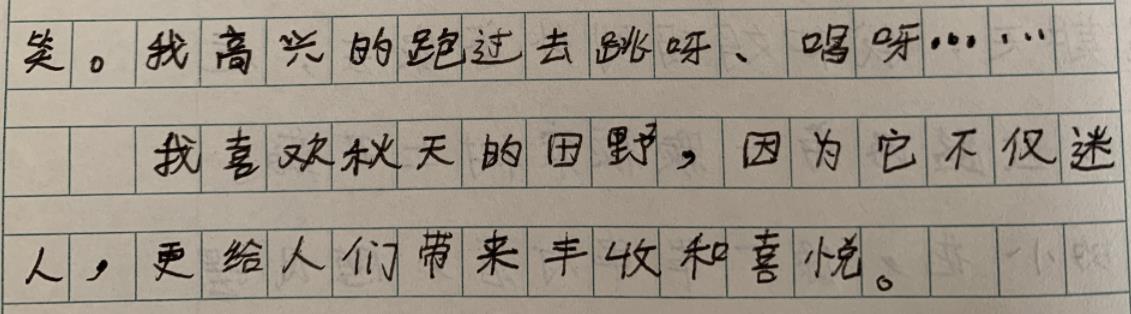 笑。我高兴的跑过去跳呀、唱呀……
我喜欢秋天的田野，因为它不仅迷
人，更给人们带来丰收和喜悦。